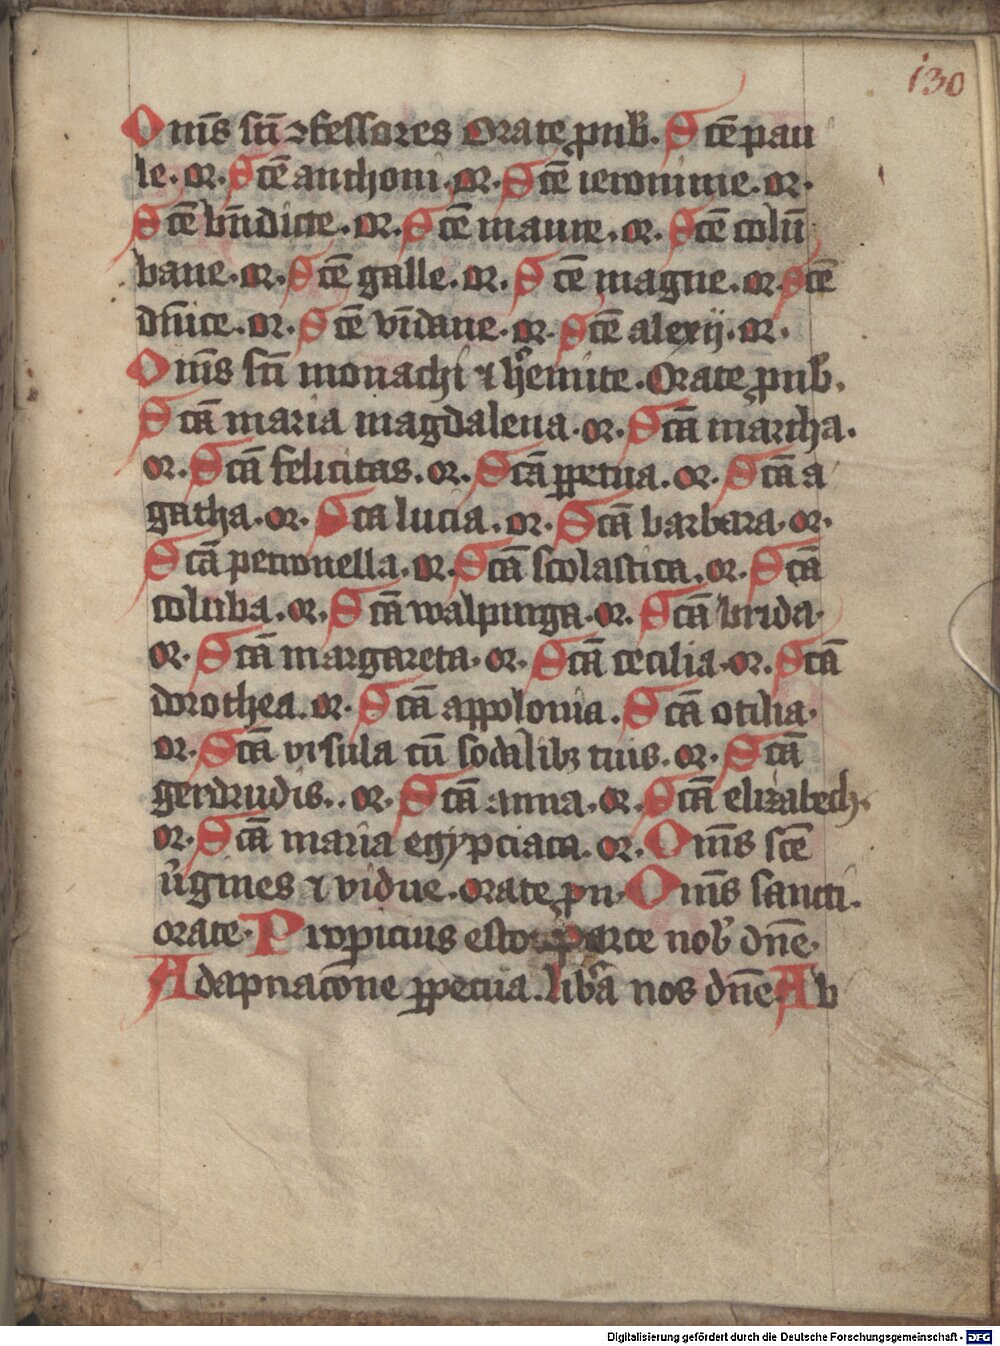 130
Om̄s sc̄i ꝯfessores Orate ꝓ nob̄. Sctē pau
le. or. Sctē anthoni. or. Sctē ieronime. or.
Sctē bn̄dicte. or. Sctē maure. or. Sctē colū
bane. or. Sctē galle. or. Sctē magne. or. Sctē
dn̄ice. or. Sctē vīdane. or. Sctē alexij. or.
Om̄s sc̄i monachi ⁊ h̓emite. Orate ꝓ nob̄.
Sctā maria magdalena. or. Sctā martha.
or. Sctā felicitas. or. Sctā ꝑpetua. or. Sctā a
gatha. or. Scta lucia. or. Sctā barbara. or.
Sctā petronella. or. Sctā scolastica. or. Sctā
colūba. or. Sctā walpurga. or. Sctā brida.
or. Sctā margareta. or. Sctā cecilia. or. Sctā
dorothea. or. Sctā appolonia. Sctā otilia.
or. Sctā vrsula cū sodalibꝫ tuis. or. Sctā
gerdrudis.. or. Sctā anna. or. Sctā elizabeth.
or. Sctā maria egypciaca. or. Om̄s scē
v̓gines ⁊ vidue. orate ꝓ n. Om̄s sancti.
orate. Propicius esto parce nob̓ dn̄e.
A dāpnacōne ꝑpetua. lib̓a nos dn̄e Ab
Digitalisierung gefördert durch die Deutsche Forschungsgemeinschaft - DFG